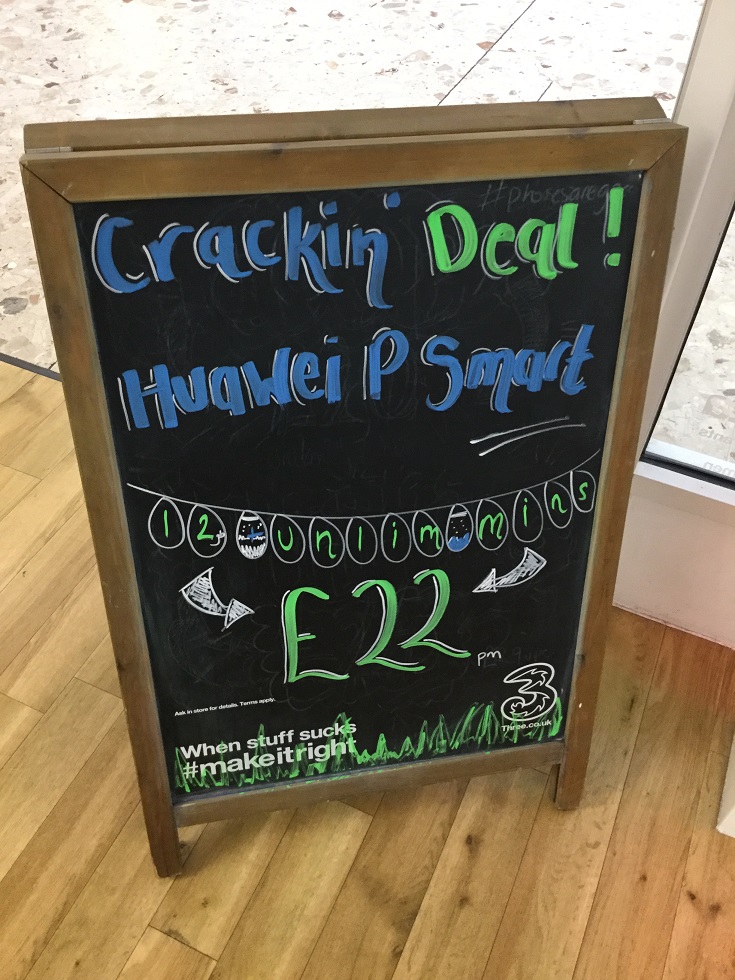 Crackin' Deal!
Huawei P Smart
12 unlim mins
£22
pm
Ask in store for details. Terms apply.
When stuff sucks
#makeitright
3
Three.co.uk